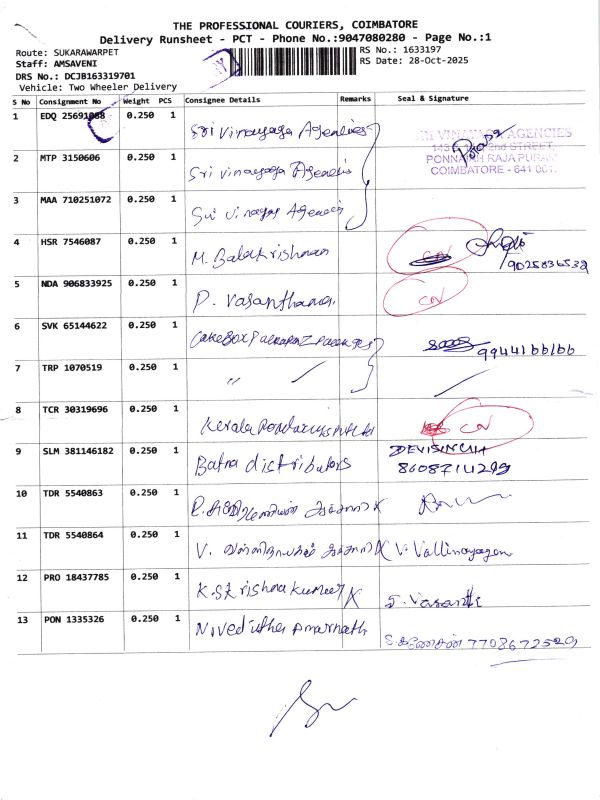 THE PROFESSIONAL COURIERS, COIMBATORE
Delivery Runsheet - PCT - Phone No.:9047080280 - Page No.:1
Route: SUKARAWARPET
RS No.: 1633197
Staff: AMSAVENI
RS Date: 28-Oct-2025
DRS No.: DCJB163319701
Vehicle: Two Wheeler Delivery
S No Consignment No Weight PCS Consignee Details Remarks Seal & Signature
1 EDQ 25691088 0.250 1 Sri Vinayaga Agencies
SRI VINAYAGA AGENCIES
2nd STREET,
PONNAIAH RAJA PURAM
COIMBATORE - 641 001.
2 MTP 3150606 0.250 1 Sri Vinayaga Agencies
3 MAA 710251072 0.250 1 Sri Vinayaga Agencies
4 HSR 7546087 0.250 1 M. Balakrishnan CN
5 NDA 906833925 0.250 1 P. Vasanthamani CN
6 SVK 65144622 0.250 1 CakeBox 9944166166
7 TRP 1070519 0.250 1 "
8 TCR 30319696 0.250 1 Kerala CN
9 SLM 381146182 0.250 1 Batra distributors DEVISINGH
8608711299
10 TDR 5540863 0.250 1
11 TDR 5540864 0.250 1 V. V. Vallinayagam
12 PRO 18437785 0.250 1 K.S. Krishnakumar X S. Vasanthi
13 PON 1335326 0.250 1 Niveditha Amarnath 7708672529